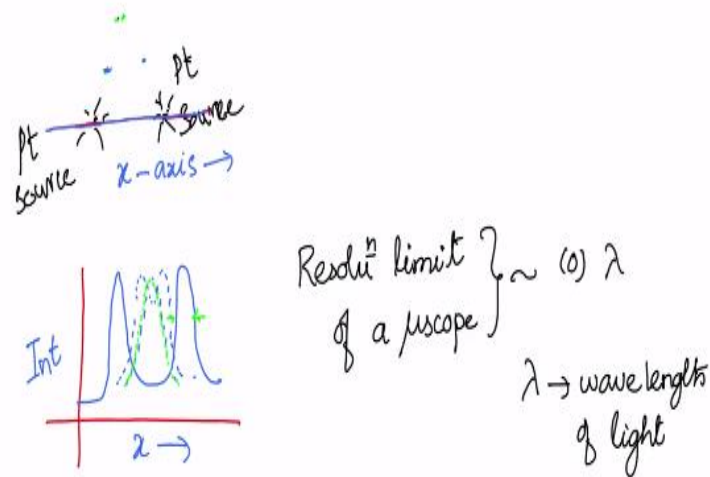 Pt
Source
Pt
Source
x-axis →
Int
x →
Resoluⁿ limit
of a μscope } ~ (O) λ
λ → wavelengts
of light